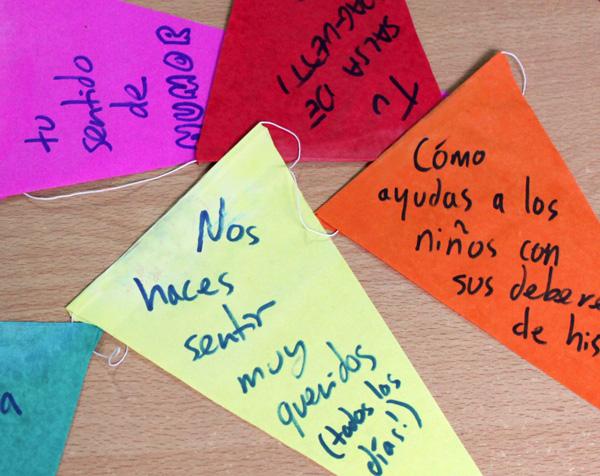 tu
sentido
de
HUMOR
Tu
SALSA DE
ESPAGUETTI
Cómo
ayudas a los
niños con
sus debere
de his
Nos
haces
sentir
muy
queridos
(todos los
días!)
a